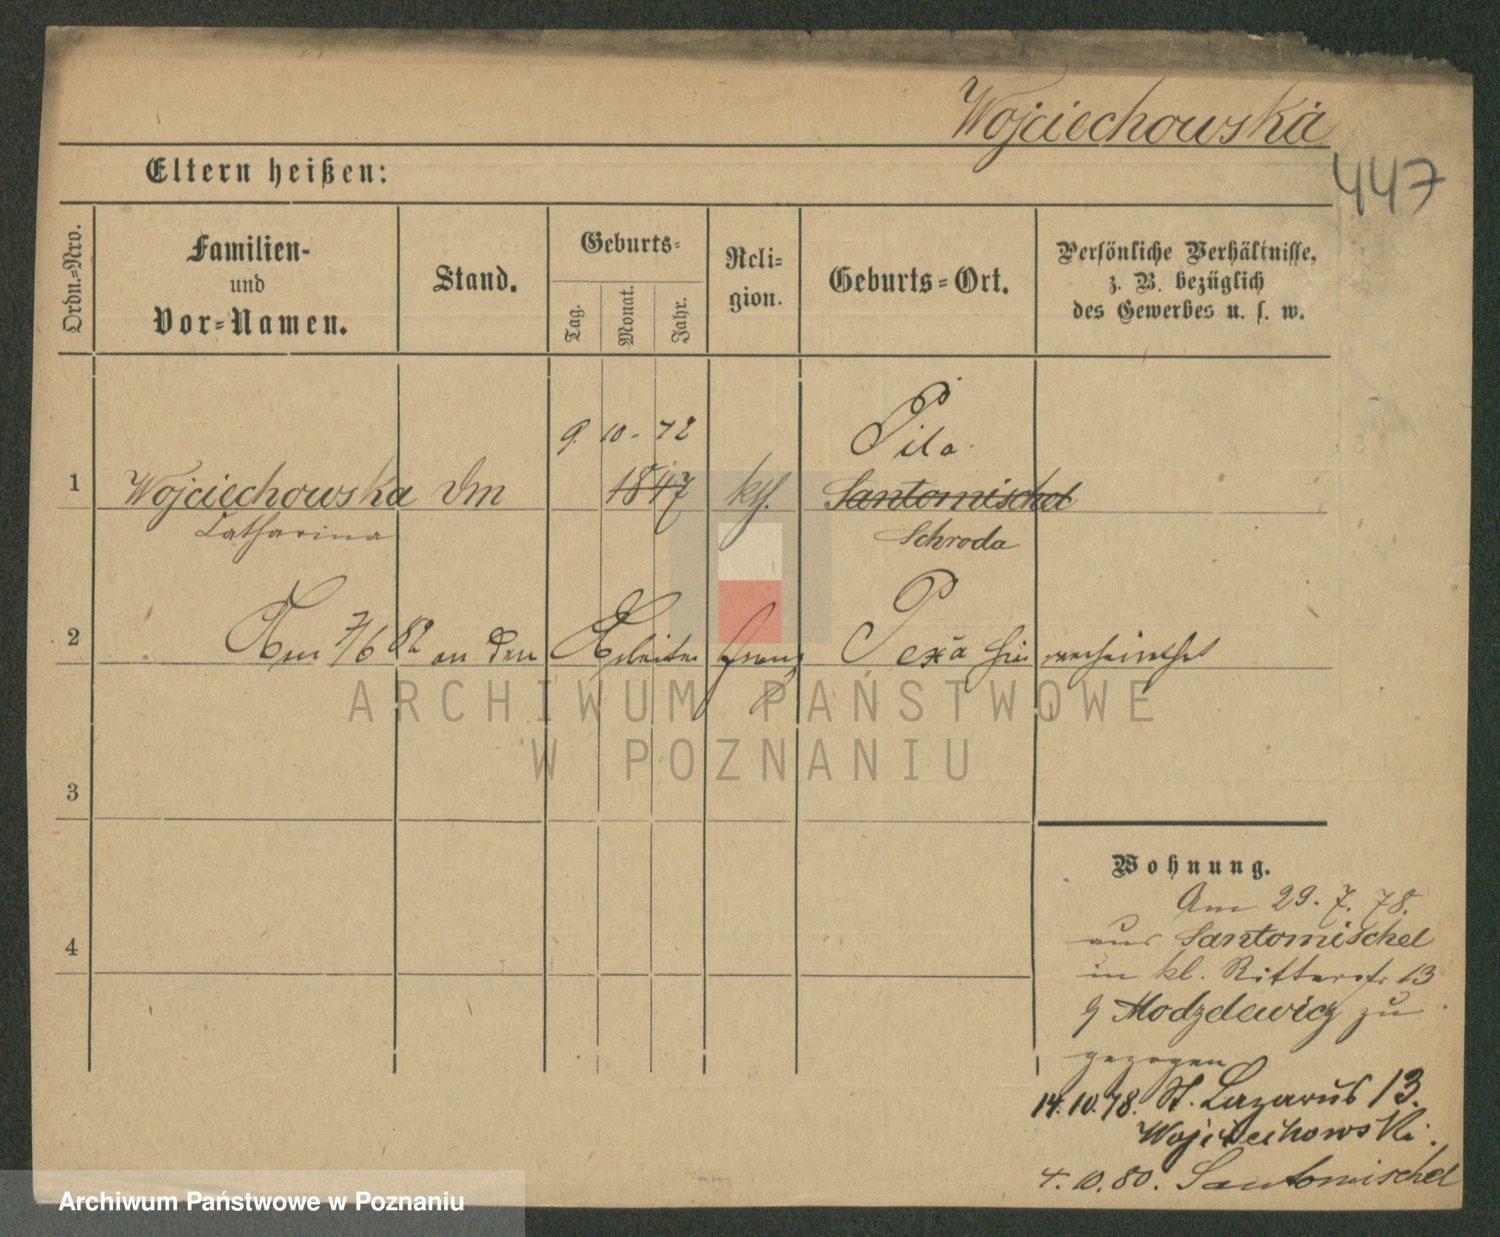 Wojciechowska
447
Eltern heißen:
Ordn.-Nro.
Familien-
und
Vor-Namen.
Stand.
Geburts-
Tag.
Monat.
Jahr.
Reli-
gion.
Geburts-Ort.
Persönliche Verhältnisse,
z. B. bezüglich
des Gewerbes u. s. w.
9. 10. 72 Pila
1 Wojciechowska 1847 kth. Santomischel
Catharina Schroda
2 Am 7/6 82 an den Arbeiter Franz Pexa hier verheirathet
ARCHIWUM PAŃSTWOWE
W POZNANIU
3
Wohnung.
Am 29. 7. 78.
4 aus Santomischel
in kl. Ritterstr 13
Modzdewicz zu
gezogen
14.10.78. St. Lazarus 13.
Wojciechowski.
4.10.80. Santomischel
Archiwum Państwowe w Poznaniu